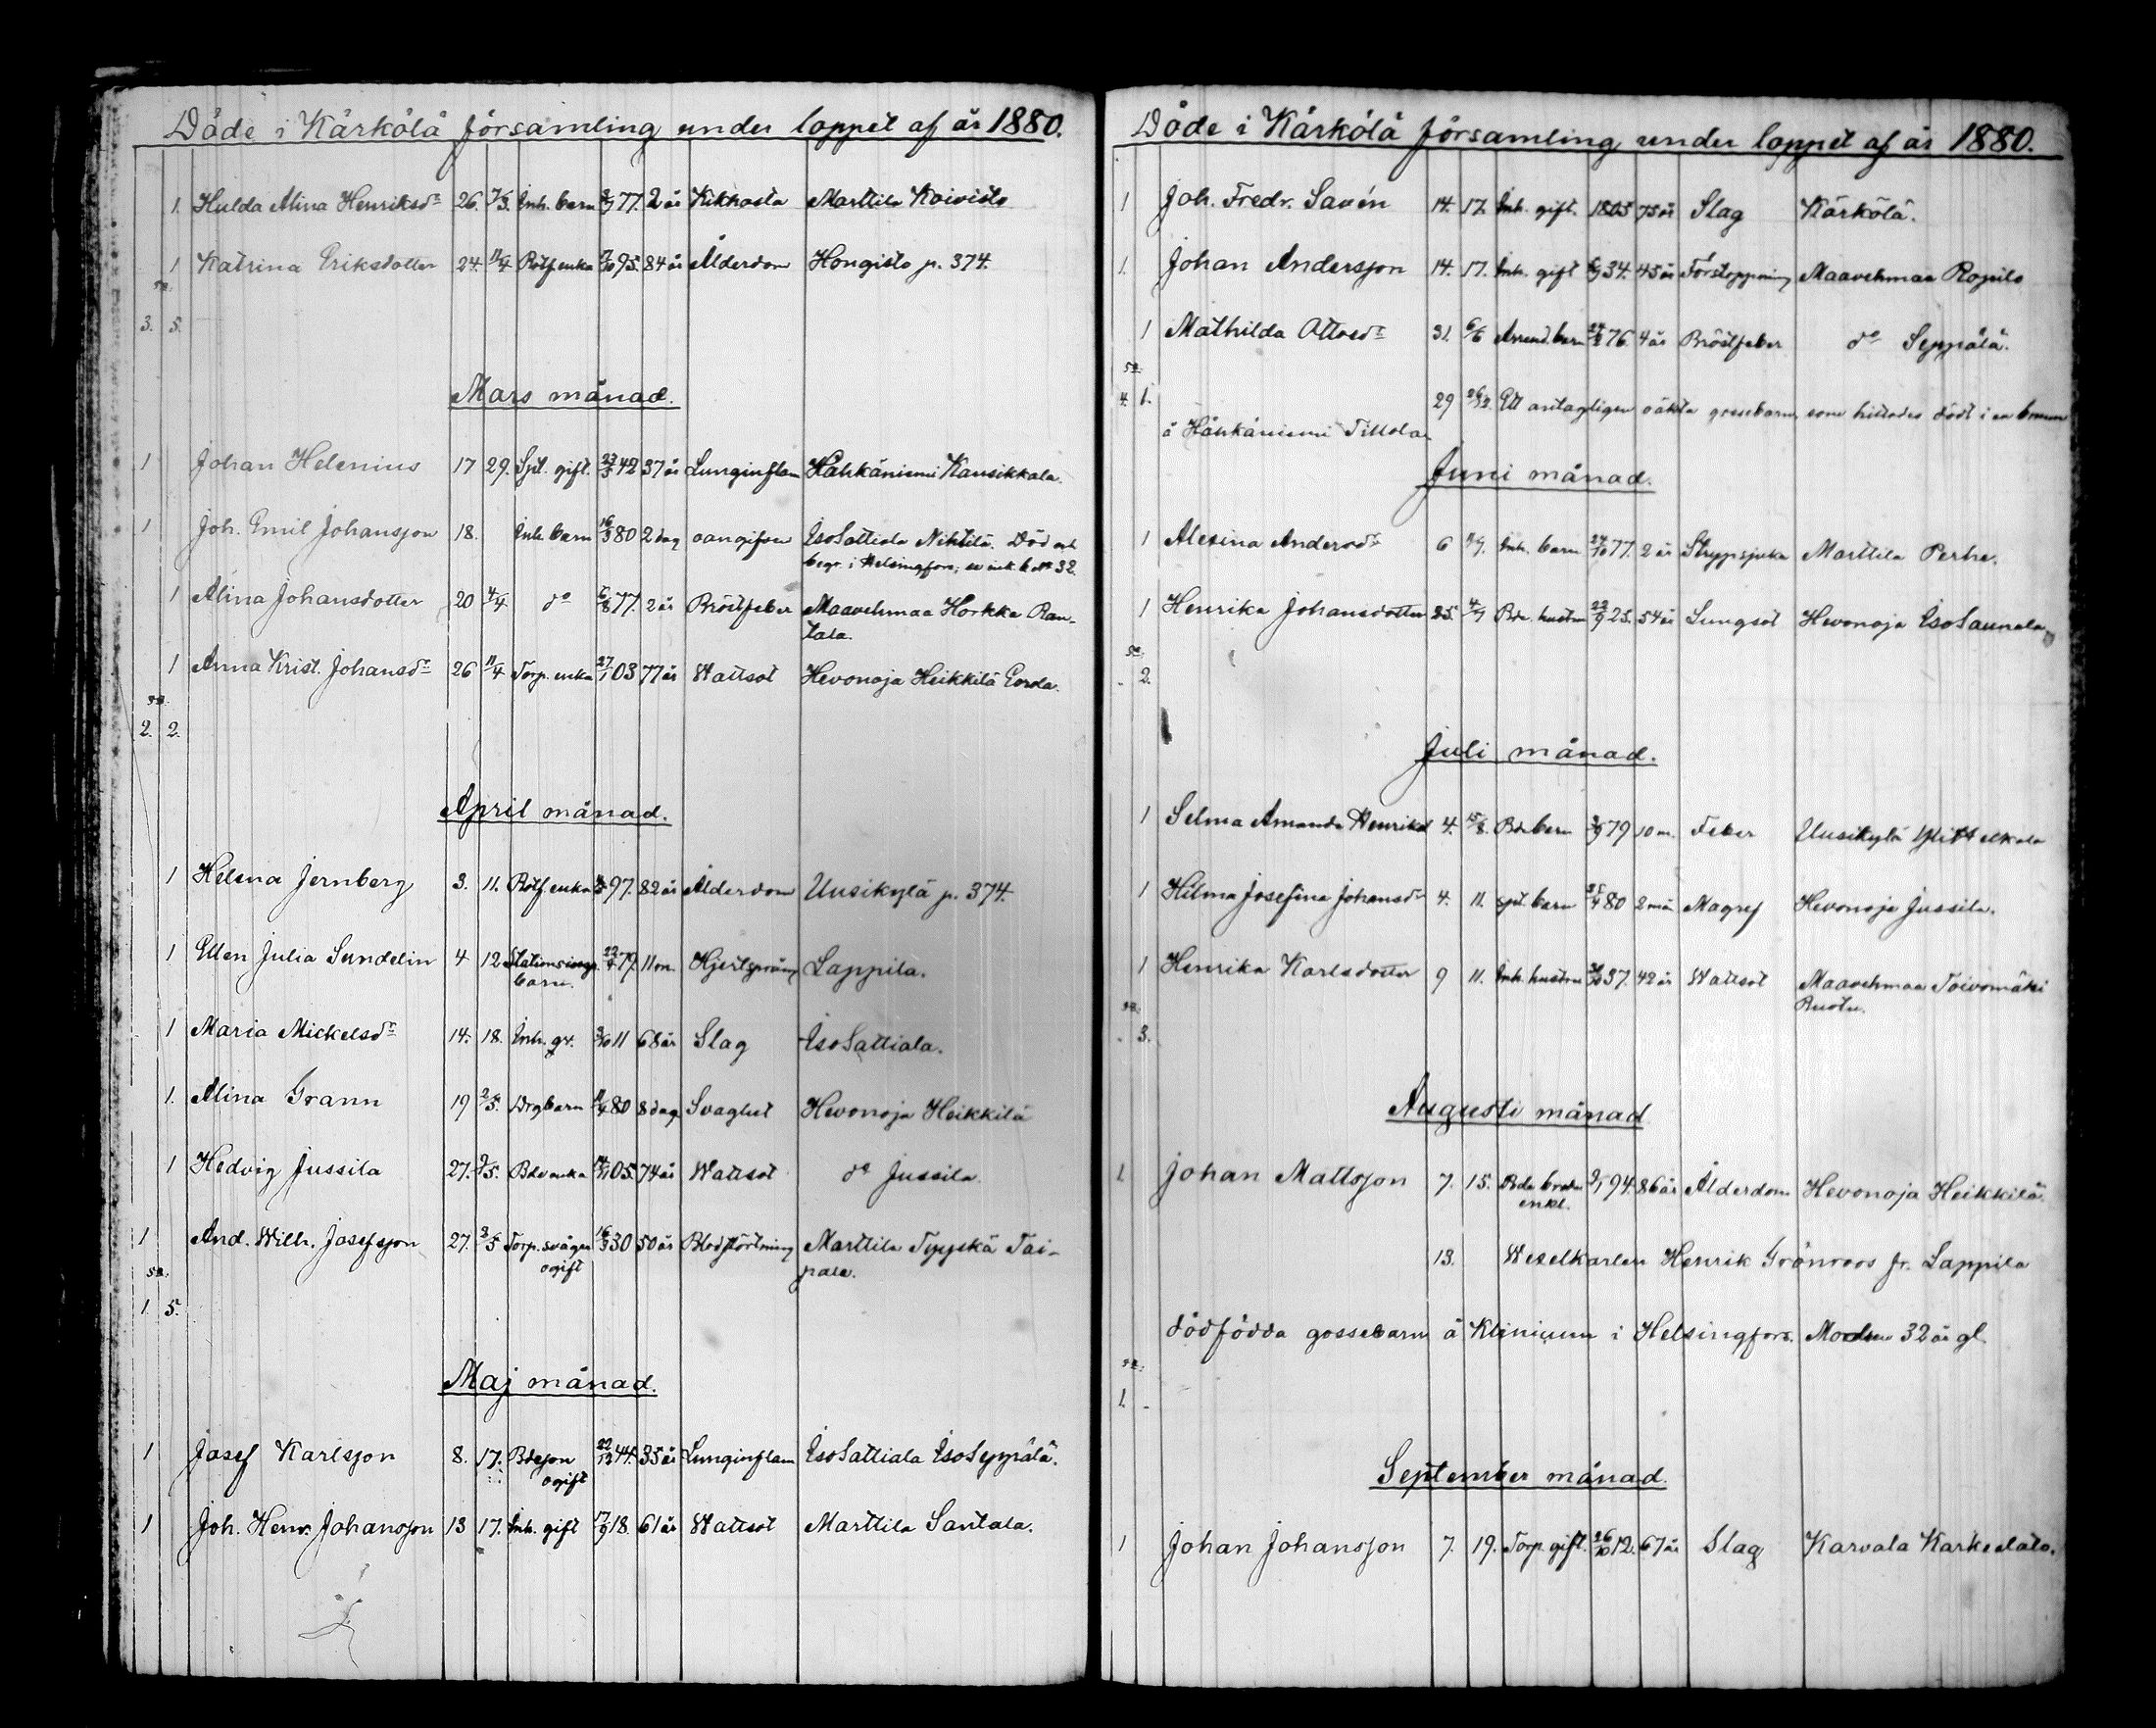 Döde i Kärkölä församling under loppet af år 1880.
1. Hulda Alina Henriksdr 26. 7/3. Inh. barn 77. 2 år Kikhosta Marttila Koivisto
1 Katrina Eriksdotter 24. 11/4 Rotf enka 95. 84 år Ålderdom Hongisto p. 374.
Sa.
3. 5.
Mars månad.
1 Johan Helenius 17 29. Spl. gift. 23/3 42 37 år Lunginflam Hähkäniemi Kausikkala.
1 Joh. Emil Johansson 18. Inh. barn 16/3 80 2 dag oangifven IsoSattiala Nihtilä. Död och
begr. i Helsingfors; se ink. b. No 32.
1 Alina Johansdotter 20 4/4 do 5/8 77. 2 år Bröstfeber Maavehmaa Horkka Ran-
tala.
1 Anna Krist. Johansdr 26 11/4 Torp. enka 27/1 03 77 år Wattsot Hevonoja Heikkilä Eerola.
Sa.
2. 2.
April månad.
1 Helena Jernberg 3. 11. Rotf enka 97. 82 år Ålderdom Uusikylä p. 374.
1 Ellen Julia Sundelin 4 12 Stationsinsp. 79. 11 m. Hjertsprång Lappila.
barn.
1 Maria Mickelsdr 14. 18. Inh. 3/10 11 68 år Slag IsoSattiala.
1. Alina Grann 19 2/5. Drg barn 11/4 80 8 dag Svaghet Hevonoja Heikkilä
1 Hedvig Jussila 27. 9/5. Bde enka 14/11 05. 74 år Wattsot do Jussila.
1 And. Wilh. Josefsson 27. 2/5 Torp. svåger 16/3 30 50 år Blodstörtning Marttila Töyskä Tai-
ogift pale.
Sa.
1. 5.
Maj månad.
1 Josef Karlsson 8. 17. Bdeson 22/12 44. 35 år Lunginflam IsoSattiala IsoSeppälä.
ogift
1 Joh. Henr. Johansson 13 17. Inh. gift 17/9 18. 61 år Wattsot Marttila Santala.
Döde i Kärkölä församling under loppet af år 1880.
1 Joh. Fredr. Savén 14. 17. Inh. gift. 1805 75 år Slag Kärkölä.
1. Johan Andersson 14. 17. Inh. gift 34. 45 år Förstoppning Maavehmaa Ropilo
1 Mathilda Ottosdr 31. 6/6 Arrend. barn 76. 4 år Bröstfeber do Seppälä.
Sa.
4. 1. 29 Ett antagligen oäkta gossebarn, som hittades dödt i en brunn
å Hähkäniemi Tillola
Juni månad.
1 Alexina Andersdr 6 11/7. Inh. barn 24/10 77. 2 år Strypsjuka Marttila Perhe.
1 Henrika Johansdotter 25. 4/7 Bde. hustru 22/9 25. 54 år Lungsot Hevonoja IsoSaunala
Sa.
. 2.
Juli månad.
1 Selma Amanda Henriksd 4. 15/8. Bde barn 79 10 m. Feber Uusikylä
1 Hilma Josefina Johansdr 4. 11. spl. barn 80 2 mån Magref Hevonoja Jussila.
1 Henrika Karlsdotter 9 11. Inh. hustru 37. 42 år Wattsot Maavehmaa Toivomäki
Ruotu.
Sa.
. 3.
Augusti månad
1. Johan Mattsson 7. 15. Bde broder 2/1 94. 86 år Ålderdom Hevonoja Heikkilä.
enkl.
13. Wexelkarlen Henrik Grönroos fr. Lappila
dödfödda gossebarn å Klinicum i Helsingfors. Modren 32 år gl.
Sa.
1. -
September månad.
1 Johan Johansson 7. 19. Torp. gift. 26/10 12. 67 år Slag Karvala